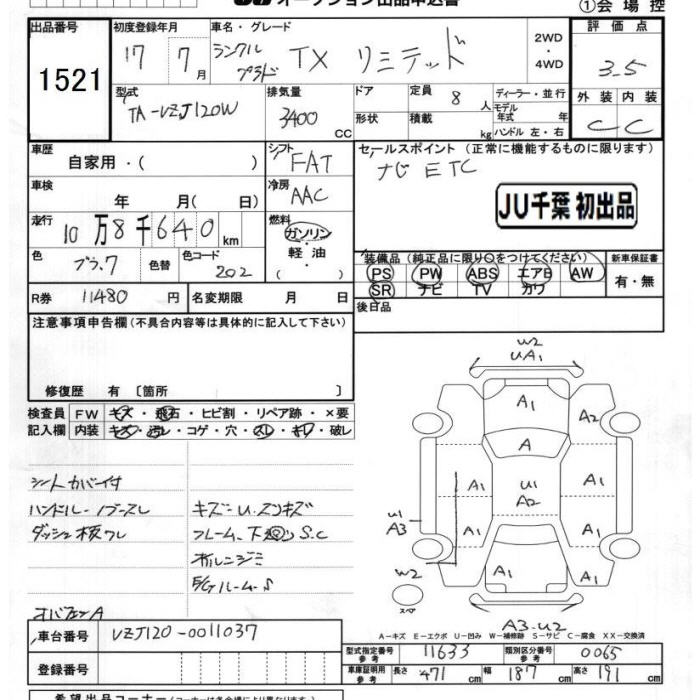 オークション出品申込書
①会場控
出品番号
1521
初度登録年月
17 7月
車名・グレード
ランクル プラド TX リミテッド
2WD
・
4WD
評価点
3.5
型式
TA-VZJ120W
排気量
3400 cc
ドア
定員 8 人
ディーラー・並行
モデル年式 年
形状
積載 kg
ハンドル 左・右
外装 内装
C C
車歴
自家用・( )
シフト
FAT
セールスポイント (正常に機能するものに限ります)
ナビ ETC
JU千葉 初出品
車検
年 月( 日)
冷房
AAC
走行
10万8千640km
燃料
ガソリン・軽油・( )
色
ブラック 色替
色コード
202
装備品(純正品に限り○をつけてください)
新車保証書
PS PW ABS エアB AW
SR ナビ TV カワ
有・無
R券 11480 円
名変期限 月 日
後日品
注意事項申告欄(不具合内容等は具体的に記入して下さい)
修復歴 有 〔箇所 〕
検査員記入欄
FW キズ・飛石・ヒビ割・リペア跡・×要
内装 キズ・汚レ・コゲ・穴・スレ・キレ・破レ
シートカバー付
ハンドル・ノブースレ
ダッシュ板ワレ
キズー U.スリキズ
フレーム、下廻り S.C
ホルニジミ
E/Gルーム-S
W2
UA1
A1
A2
A
A1
A1
U1
A2
A1
U1
A3
A1
A1
A1
A1
W2
スペア
A3.U2
A-キズ E-エクボ U-凹み W-補修跡 S-サビ C-腐食 XX-交換済
車台番号 VZJ120-0011037
登録番号
型式指定番号 参考 11633
類別区分番号 参考 0065
車庫証明用 参考 長さ 471 cm 幅 187 cm 高さ 191 cm
希望出品コーナー(コーナーは各会場により異なります)